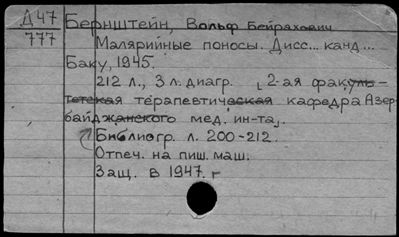 Д47
777
Бернштейн, Вольф Бейрахович
Малярийные поносы. Дисс... канд...
Баку, 1945.
212 л., 3 л. диагр. [2-ая факуль-
тетская терапевтическая кафедра Азер-
байджанского мед. ин-та].
Библиогр. л. 200-212.
Отпеч. на пиш. маш.
Защ. в 1947. г